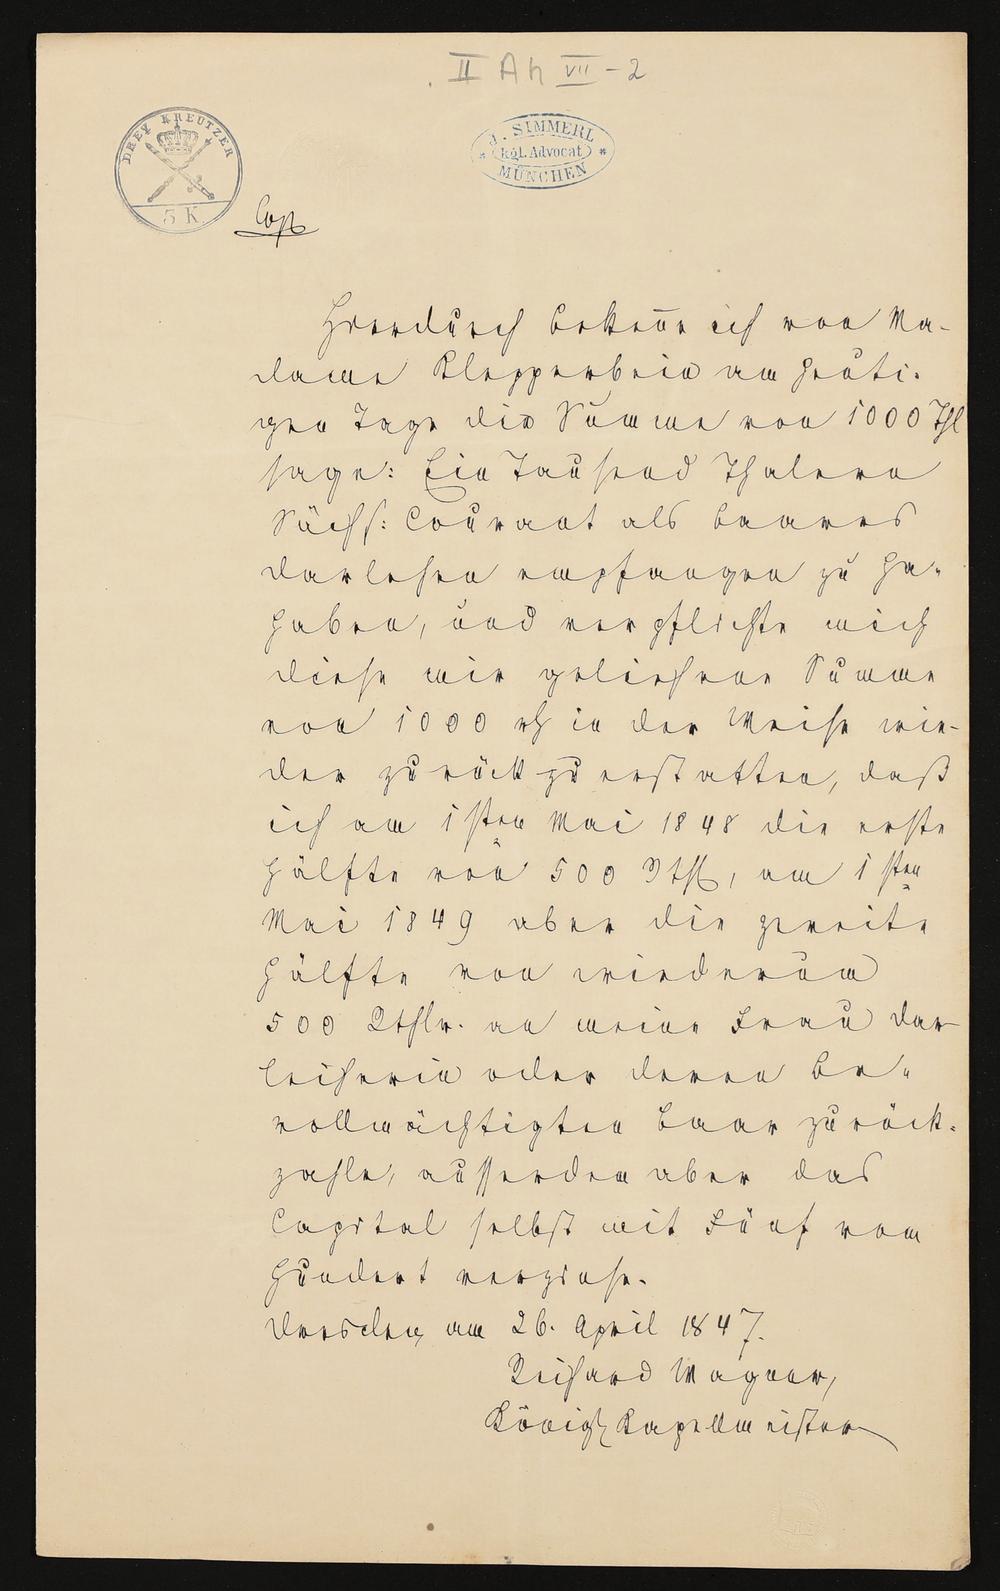 II Ah VII - 2
DREY KREUTZER
3 K.
J. SIMMERL
kgl. Advocat
MÜNCHEN
Cop
Hierdurch bekenne ich von Ma-
dame Klepperbein am heuti-
gen Tage die Summe von 1000 Thl
sage: Ein Tausend Thalern
Sächs: Courant als baares
Darlehen empfangen zu ha-
haben, und verpflichte mich
diese mir geliehene Summe
von 1000 rh in der Weise wie-
der zurückzuerstatten, daß
ich am 1sten Mai 1848 die erste
Hälfte von 500 Rthl, am 1sten
Mai 1849 aber die zweite
Hälfte von wiederum
500 Rthlr. an meine Frau Dar-
leiherin oder deren Be-
vollmächtigten baar zurück-
zahle, ausserdem aber das
Capital selbst mit Fünf vom
Hundert verzinse.
Dresden, am 26. April 1847.
Richard Wagner,
Königl Kapellmeister